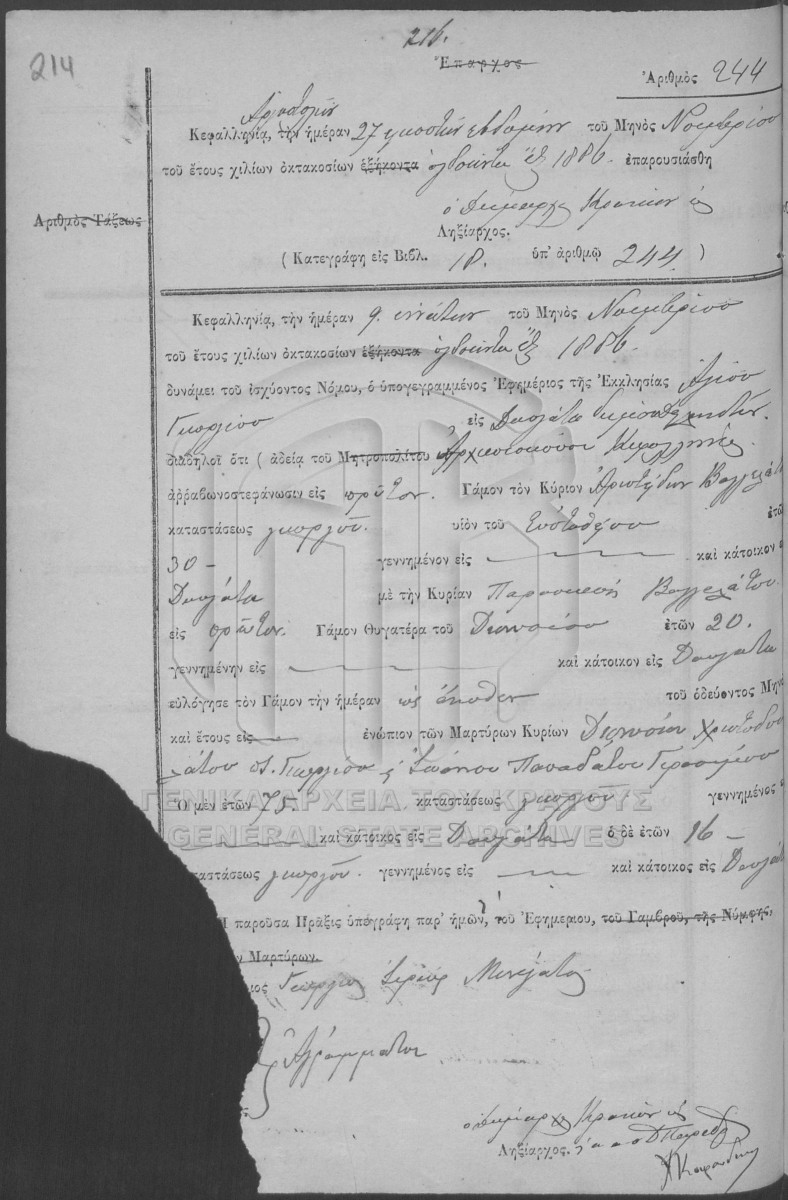 216.
214
Ἔπαρχος
Ἀριθμὸς 244
Κεφαλληνίᾳ, τὴν ἡμέραν 27 εἰκοστὴν ἑβδόμην τοῦ Μηνὸς Νοεμβρίου
τοῦ ἔτους χιλίων ὀκτακοσίων ἑξήκοντα ὀγδοήντα ἕξ 1886. ἐπαρουσιάσθη
Ἀριθμὸς Τάξεως
ὁ Δήμαρχος Κρανίων ὡς
Ληξίαρχος.
( Κατεγράφη εἰς Βιβλ. 18. ὑπ' ἀριθμῷ 244. )
Κεφαλληνίᾳ, τὴν ἡμέραν 9. ἐννάτην τοῦ Μηνὸς Νοεμβρίου
τοῦ ἔτους χιλίων ὀκτακοσίων ἑξήκοντα ὀγδοήντα ἕξ 1886.
δυνάμει τοῦ ἰσχύοντος Νόμου, ὁ ὑπογεγραμμένος Ἐφημέριος τῆς Ἐκκλησίας Ἁγίου
Γεωργίου, εἰς Δαυγάτα
διαδηλοῖ ὅτι ( ἀδείᾳ τοῦ Μητροπολίτου Ἀρχιεπισκόπου Κεφαλληνίας.
ἀῤῥαβωνοστεφάνωσιν εἰς πρῶτον. Γάμον τὸν Κύριον Ἀριστείδην Βαγγελάτ
καταστάσεως γεωργοῦ. υἱὸν τοῦ Εὐσταθίου ἐτῶ
30 – γεννημένον εἰς καὶ κάτοικον
Δαυγάτα μὲ τὴν Κυρίαν Παρασκευὴ Βαγγελάτου.
εἰς πρῶτον. Γάμον Θυγατέρα τοῦ Διονυσίου ἐτῶν 20.
γεννημένην εἰς καὶ κάτοικον εἰς Δαυγάτα
εὐλόγησε τὸν Γάμον τὴν ἡμέραν ὡς ἄνωθεν τοῦ ὁδεύοντος Μηνὸ
καὶ ἔτους εἰς ἐνώπιον τῶν Μαρτύρων Κυρίων Διονυσίου Χριστοδου
λάτου Γεωργίου Ἰωάννου Παναδάτου Γερασίμου
ΓΕΝΙΚΑ ΑΡΧΕΙΑ ΤΟΥ ΚΡΑΤΟΥΣ
Ὁ μὲν ἐτῶν 75 καταστάσεως γεωργοῦ γεννημένος
GENERAL STATE ARCHIVES
καὶ κάτοικος εἰς Δαυγάτα ὁ δὲ ἐτῶν 26 –
ταστάσεως γεωργοῦ. γεννημένος εἰς καὶ κάτοικος εἰς Δαυγάτ
Ἡ παροῦσα Πρᾶξις ὑπογράφη παρ' ἡμῶν, τοῦ Ἐφημερίου, τοῦ Γαμβροῦ, τῆς Νύμφης,
ν Μαρτύρων.
ιος Γεώργιος Ἱερεὺς Μενεγάτος
Ἀγράμματοι
ὁ Δήμαρχος Κρανίων ὡς
Ληξίαρχος.